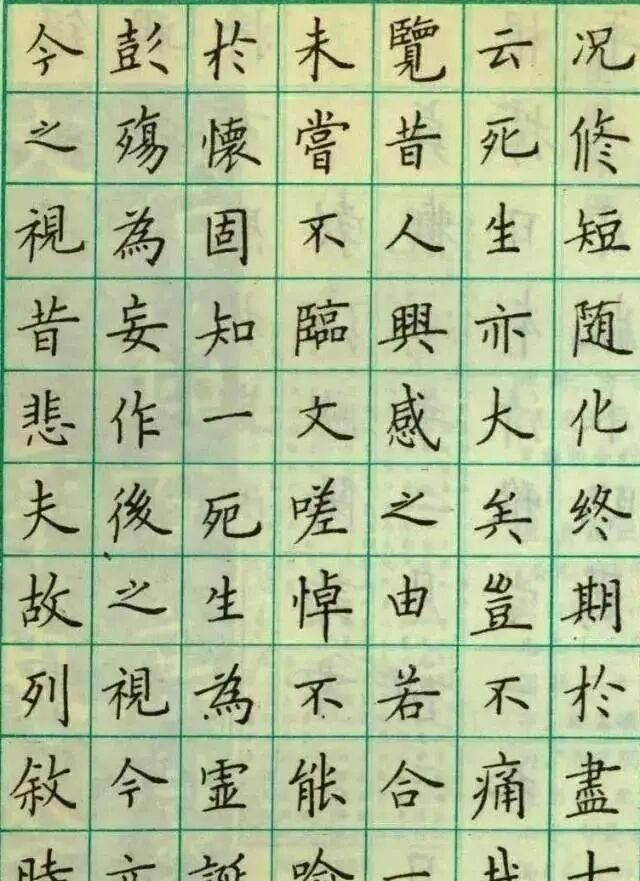 况修短随化终期於盡
云死生亦大矣豈不痛哉
覽昔人興感之由若合一
未嘗不臨文嗟悼不能喻
於懷固知一死生為虚誕
彭殤為妄作後之視今亦
今之視昔悲夫故列敘時